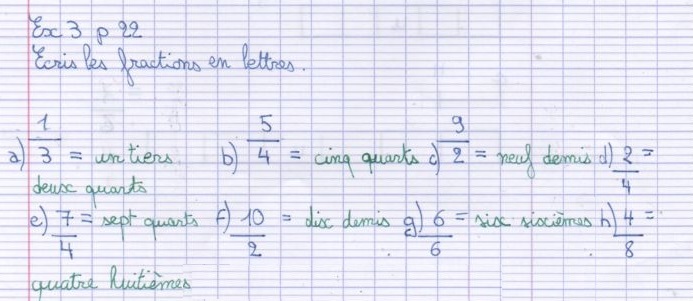 Ex 3 p 22
Ecris les fractions en lettres.
a) 1/3 = un tiers b) 5/4 = cinq quarts c) 9/2 = neuf demis d) 2/4 =
deux quarts
e) 7/4 = sept quarts f) 10/2 = dix demis g) 6/6 = six sixièmes h) 4/8 =
quatre huitièmes